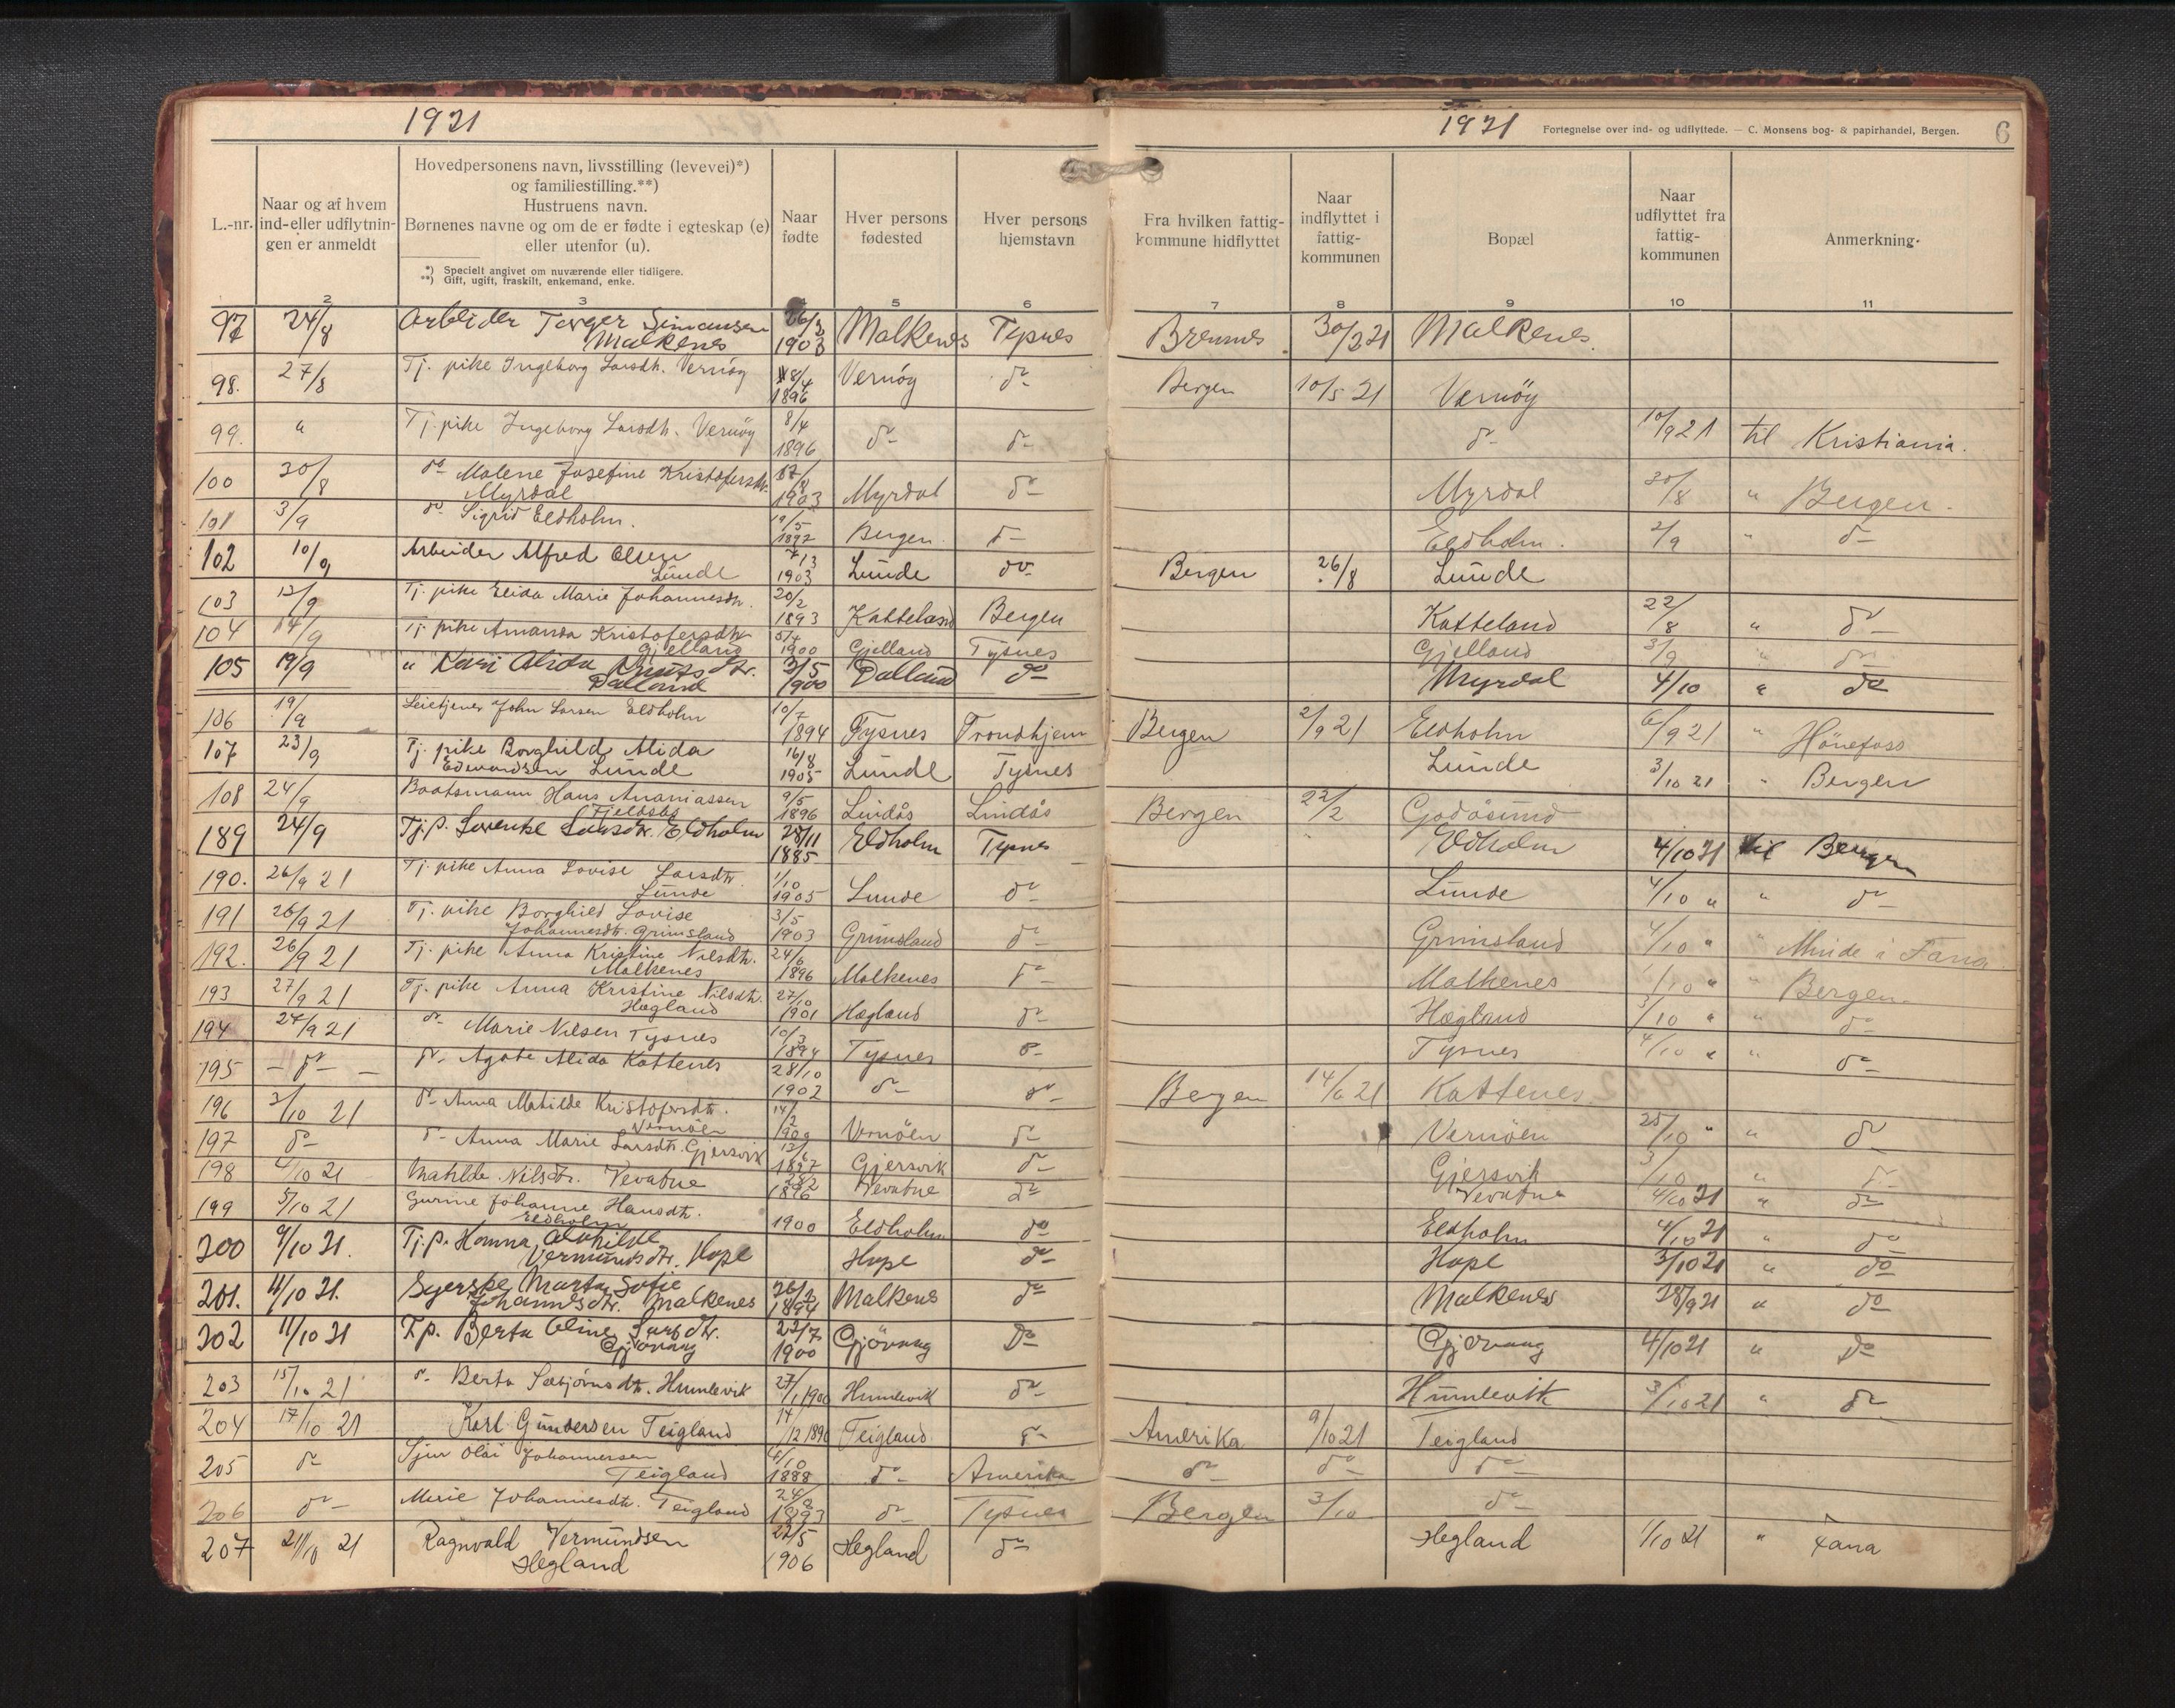 1921
1921 Fortegnelse over ind- og udflyttede. — C. Monsens bog- & papirhandel, Bergen. 6
L.-nr.
Naar og af hvem ind-eller udflytningen er anmeldt
Hovedpersonens navn, livsstilling (levevei)*)
og familiestilling.**)
Hustruens navn.
Børnenes navne og om de er fødte i egteskap (e)
eller utenfor (u).
*) Specielt angivet om nuværende eller tidligere.
**) Gift, ugift, fraskilt, enkemand, enke.
Naar fødte
Hver persons fødested
Hver persons hjemstavn
Fra hvilken fattig-kommune hidflyttet
Naar indflyttet i fattig-kommunen
Bopæl
Naar udflyttet fra fattig-kommunen
Anmerkning.
2 3 5 6 7 8 9 10 11
97 24/8 Arbeider Torger Simonsen Malkenes 1903 Malkenes Tysnes Bremnes 30/2 21 Malkenes
98. 27/8 Tj. pike Ingeborg Larsdtr. Vernöy 8/4 1896 Vernöy do Bergen 10/5 21 Vernöy
99. " Tj. pike Ingeborg Larsdtr. Vernöy 8/4 1896 do do do 10/9 21 til Kristiania.
100 30/8 do Malene Josefine Kristofersdtr. Myrdal 1903 Myrdal do Myrdal 30/8 " Bergen.
101 3/9 do Sigrid Eldholm. 19/5 1892 Bergen. do Eldholm. 2/9 " do
102 10/9 Arbeider Alfred Olsen Lunde 1903 Lunde do Bergen 26/8 Lunde
103 12/9 Tj. pike Elida Marie Johannesdtr. 20/2 1893 Katteland Bergen Katteland 22/8 " do
104 14/9 Tj. pike Amanda Kristofersdtr. Gjelland 1900 Gjelland Tysnes Gjelland 3/9 " do
105 19/9 " Kari Alida Knutsdtr. Dalland 3/5 1900 Dalland do Myrdal 4/10 " do
106 19/9 Leietjener John Larsen Eldholm 10/7 1894 Tysnes Trondhjem Bergen 2/9 21 Eldholm 6/9 21 " Hönefoss
107 23/9 Tj. pike Borghild Alida Edvardsen Lunde 16/8 1905 Lunde Tysnes Lunde 3/10 21 " Bergen
108 24/9 Baatsmann Hans Ananiassen 9/5 1896 Lindås Lindås Bergen 22/2 Godösund
189 24/9 Tj.p. Larsdtr. Eldholm 28/11 1885 Eldholm Tysnes Eldholm 4/10 21 til Bergen
190. 26/9 21 Tj. pike Anna Lovise Larsdtr. Lunde 1/10 1905 Lunde do Lunde 4/10 " " do
191 26/9 21 Tj. pike Borghild Lovise Johannesdtr. Grimsland 3/5 1903 Grimsland do Grimsland 4/10 " " Minde i Fana
192. 26/9 21 Tj. pike Anna Kristine Nilsdtr. Malkenes 24/6 1896 Malkenes do Malkenes 1/10 " " Bergen
193 27/9 21 Tj. pike Anna Kristine Nilsdtr. Hægland 27/10 1901 Hægland do Hægland 3/10 " " do
194 27/9 21 do Marie Nilsen Tysnes 10/3 1894 Tysnes do Tysnes 4/10 " " do
195 — do — do Agate Alida Kattenes 28/10 1902 do do Bergen 14/6 21 Kattenes
196 3/10 21 do Anna Matilde Kristofersdtr. Vernöen 14/2 Vernöen do Vernöen 25/10 " " do
197 do do Anna Marie Larsdtr. Gjersvik Gjersvik do Gjersvik 3/10 " do
198 4/10 21 Matilde Nilsdtr. Vevatne 1896 Vevatne do Vevatne 4/10 21 " do
199 5/10 21 Gurine Johanne Hansdtr. Eldholm 1900 Eldholm do Eldholm 4/10 21 " do
200 9/10 21. Tj.p. Hanna Alvhilde Vermundsdtr. Hope Hope do Hope 3/10 21 " do
201. 11/10 21. Syerske Marta Sofie Johannesdtr. Malkenes 1894 Malkenes do Malkenes 28/9 21 " do
202 11/10 21 T.p. Berta Oline Larsdtr. Gjövaag 22/7 1900 Gjövaag do Gjövaag 4/10 21 " do
203 15/10 21 do Berta Sæbjörnsdtr. Humlevik 27/1 1900 Humlevik do Humlevik 3/10 21 " do
204 17/10 21 Karl Gundersen Teigland 14/12 1890 Teigland do Amerika 9/10 21 Teigland
205 do Sjur Olai Johannessen Teigland 4/10 1888 do Amerika do do do
206 do Marie Johannesdtr. Teigland 24/8 1893 do Tysnes Bergen 3/10 do
207 21/10 21 Ragnvald Vermundsen Hegland 22/5 1906 Hegland do Hegland 1/10 21 " Fana